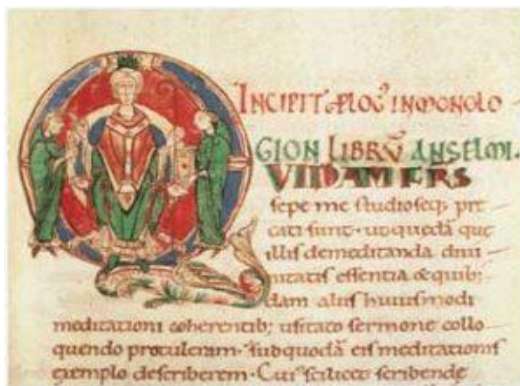 INCIPIT PLOG' IN MONOLO
GION LIBRŪ ANSELMI.
VIDAM FRS
sepe me studioseq; pre
cati sunt. ut quedā que
illis de meditanda divi
nitatis essentia & quib;
dam aliis huiusmodi
meditationi coherentib; usitato sermone collo
quendo protuleram. sub quodā eis meditationis
exemplo describerem. Cuius scilicet scribende